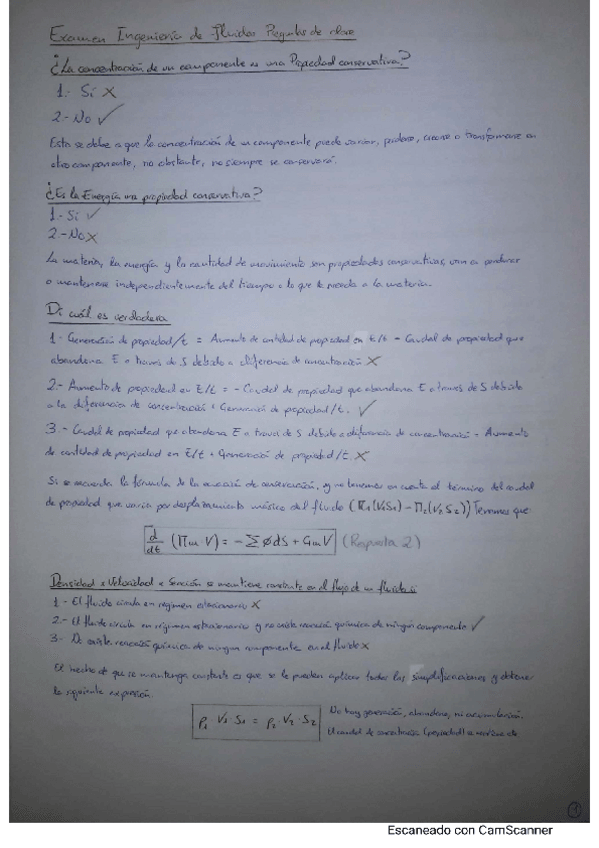 Examen Ingeniería de Fluidos Preguntas de clase
¿La concentración de un componente es una Propiedad conservativa?
1.- Sí X
2.- No ✓
Esto se debe a que la concentración de un componente puede variar, perderse, crearse o transformarse en
otro componente, no obstante, no siempre se conservará.
¿Es la Energía una propiedad conservativa?
1.- Sí ✓
2 - No X
La materia, la energía y la cantidad de movimiento son propiedades conservativas, van a perdurar
o mantenerse independientemente del tiempo o lo que le suceda a la materia.
Di cuál es verdadera
1.- Generación de propiedad/t = Aumento de cantidad de propiedad en E/t - Caudal de propiedad que
abandona E a traves de S debido a diferencia de concentración X
2.- Aumento de propiedad en E/t = - Caudal de propiedad que abandona E a traves de S debido
a la diferencia de concentración + Generación de propiedad/t. ✓
3.- Caudal de propiedad que abandona E a traves de S debido a diferencia de concentración = Aumento
de cantidad de propiedad en E/t + Generación de propiedad/t. X
Si se recuerda la fórmula de la ecuación de conservación, y no tenemos en cuenta el término del caudal
de propiedad que varia por desplazamiento másico del fluido (Π1(V1S1) - Π2(V2S2)) Tenemos que:
d/dt (Πm V) = -∑ØdS + Gm V (Respuesta 2)
Densidad x Velocidad x Sección se mantiene constante en el flujo de un fluido si
1 - El fluido circula en régimen estacionario X
2.- El fluido circula en régimen estacionario y no existe reacción química de ningún componente ✓
3- No existe reacción química de ningun componente en el fluido X
El hecho de que se mantenga constante es que se le pueden aplicar todas las simplificaciones y obtener
la siguiente expresión.
ρ1 · V1 · S1 = ρ2 · V2 · S2
No hay generación, abandono, ni acumulación.
El caudal de
1
Escaneado con CamScanner